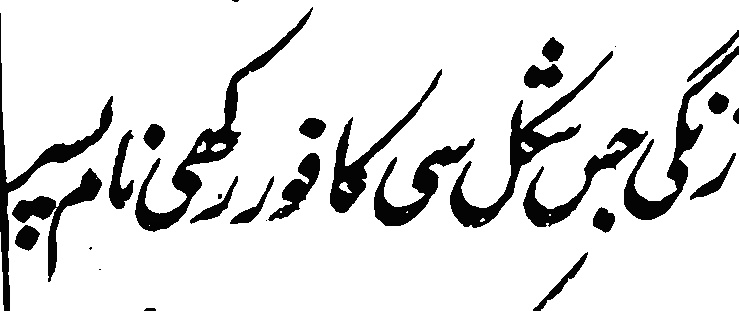 زنگی جس شکل سی کافور رکھی نام پسر